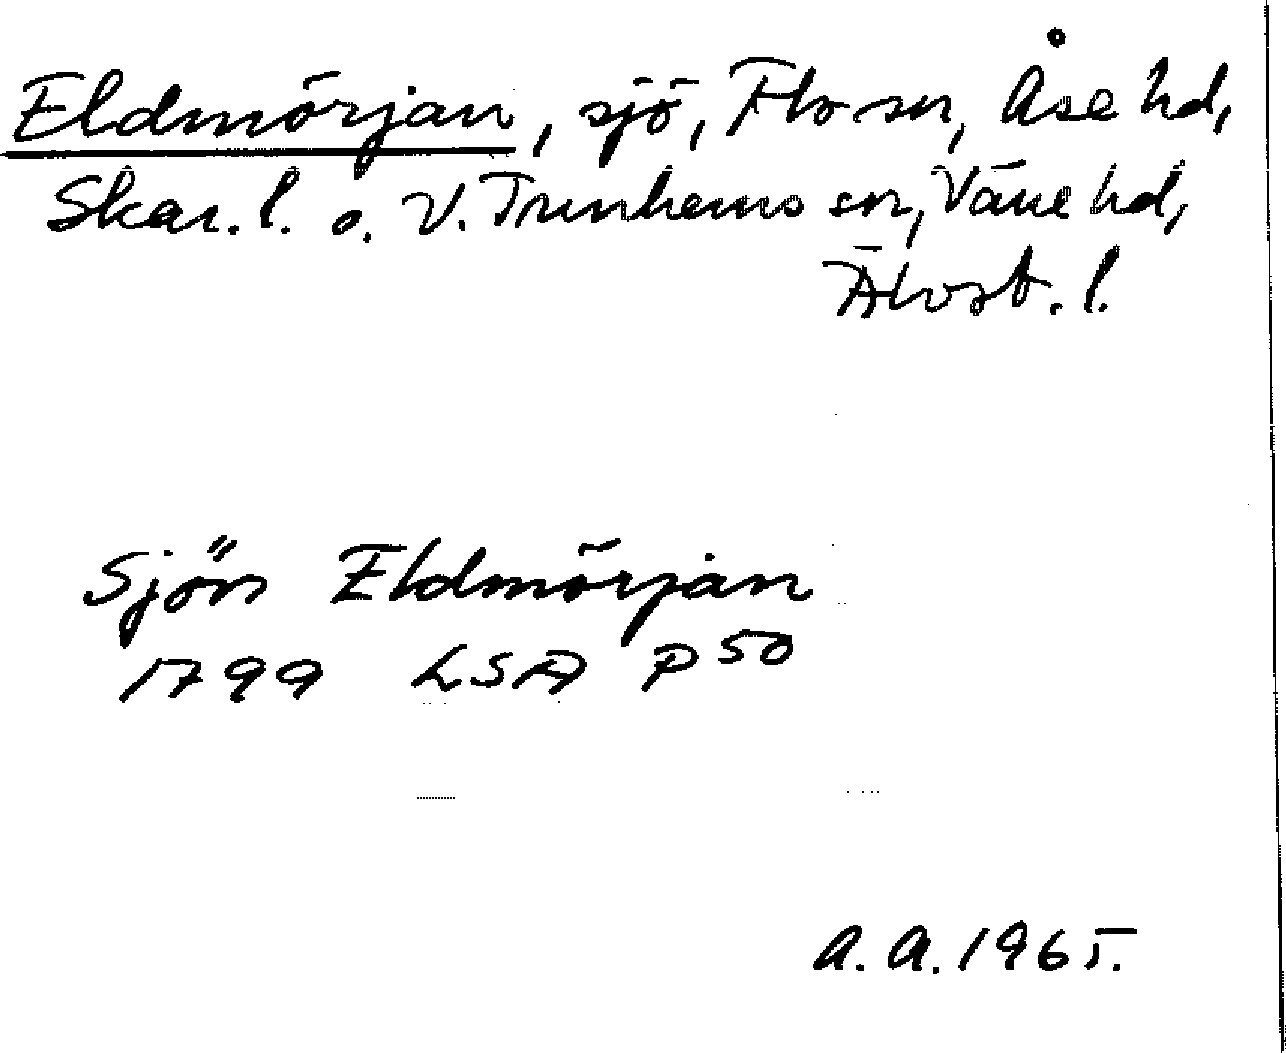 Eldmörjan, sjö, Flo sn, Åse hd,
Skar. l. o. V. Trunhems sn, Väne hd,
Älvsb. l.
Sjön Eldmörjan
1799 LSA P50
A. A. 1965.